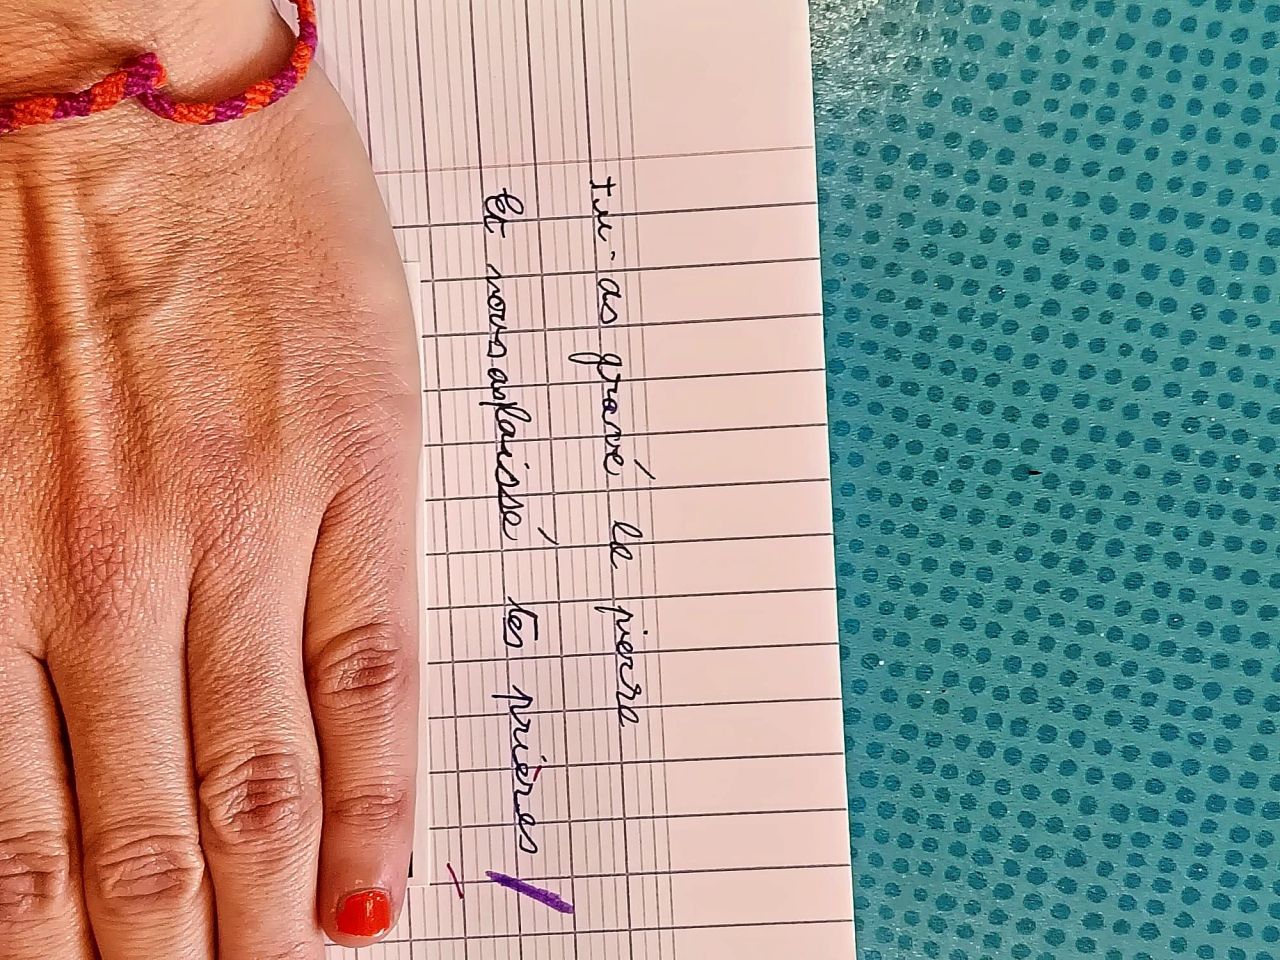 Tu as gravé la pierre
Et nous as laissé tes prières